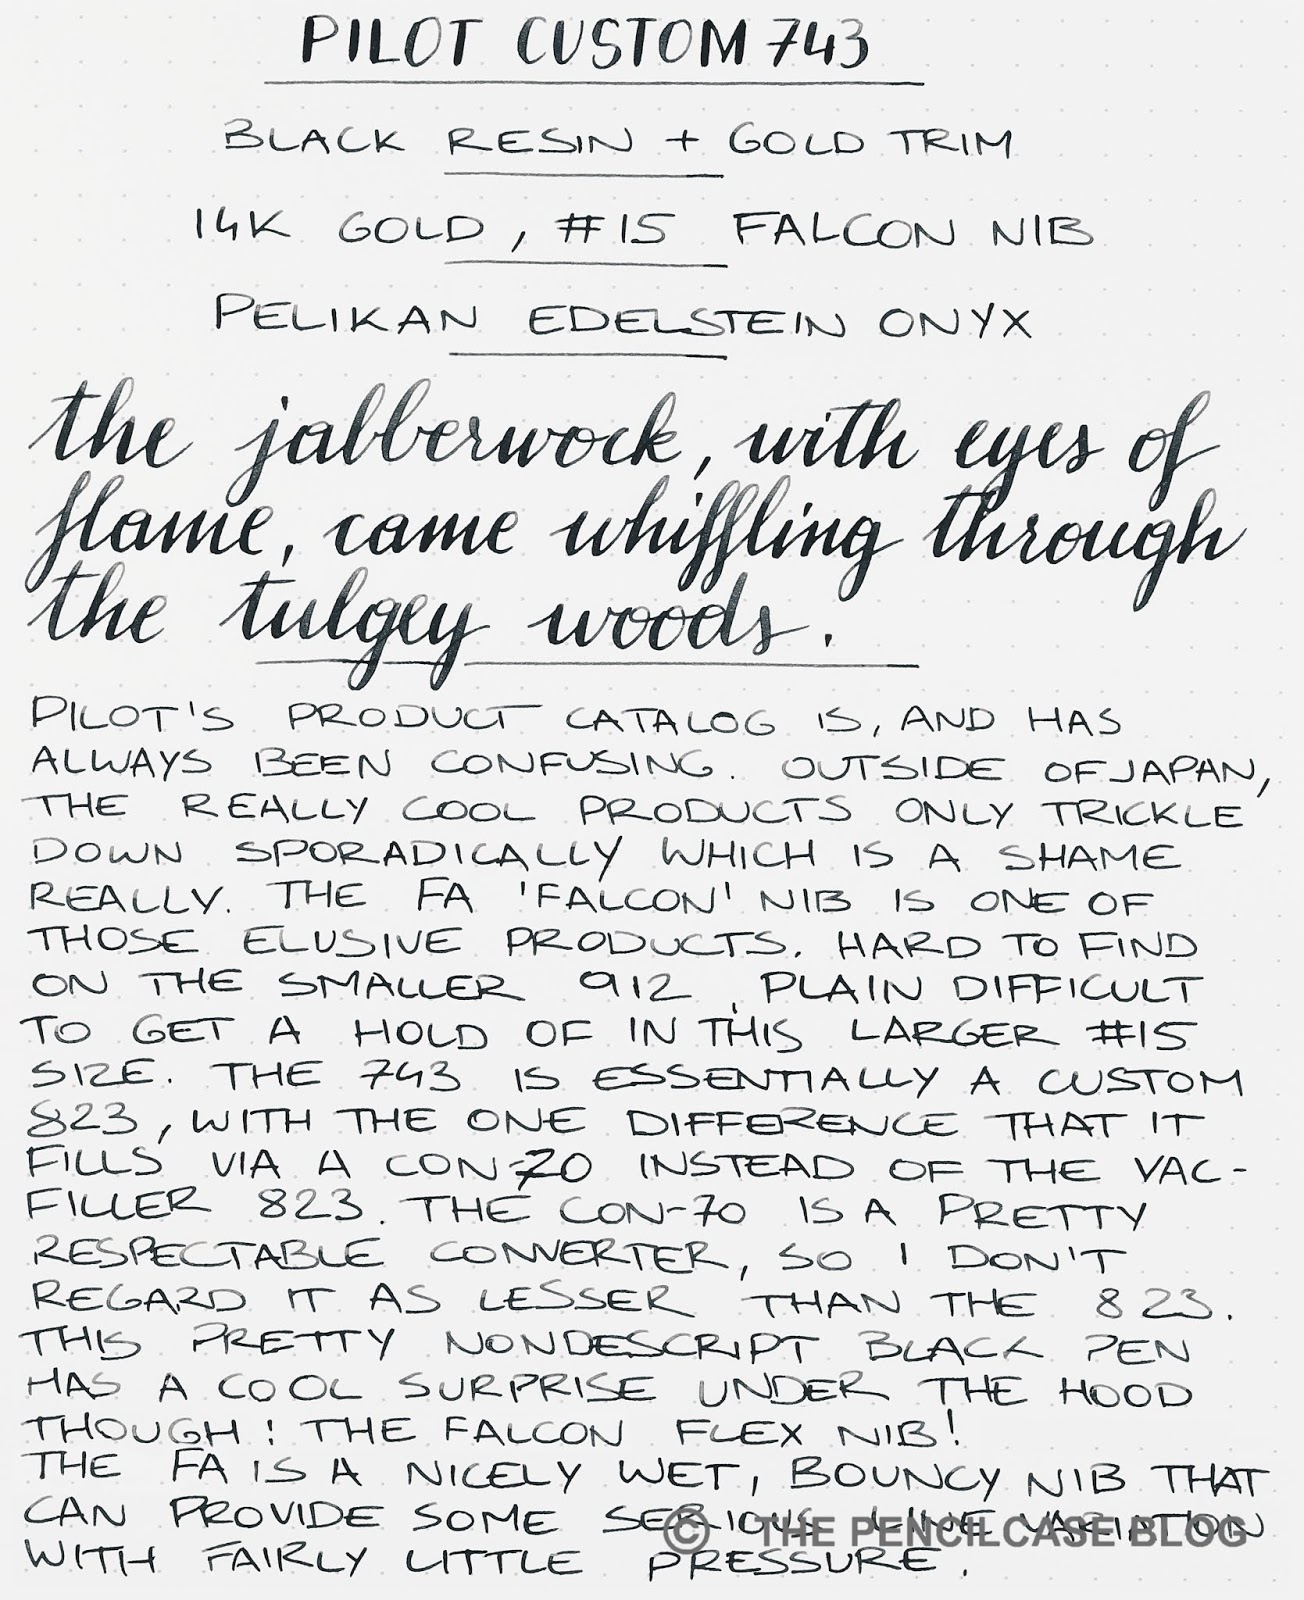 PILOT CUSTOM 743
BLACK RESIN + GOLD TRIM
14K GOLD, #15 FALCON NIB
PELIKAN EDELSTEIN ONYX
the jabberwock, with eyes of
flame, came whiffling through
the tulgey woods.
PILOT'S PRODUCT CATALOG IS, AND HAS
ALWAYS BEEN CONFUSING. OUTSIDE OF JAPAN,
THE REALLY COOL PRODUCTS ONLY TRICKLE
DOWN SPORADICALLY WHICH IS A SHAME
REALLY. THE FA 'FALCON' NIB IS ONE OF
THOSE ELUSIVE PRODUCTS. HARD TO FIND
ON THE SMALLER 912, PLAIN DIFFICULT
TO GET A HOLD OF IN THIS LARGER #15
SIZE. THE 743 IS ESSENTIALLY A CUSTOM
823, WITH THE ONE DIFFERENCE THAT IT
FILLS VIA A CON-70 INSTEAD OF THE VAC-
FILLER 823. THE CON-70 IS A PRETTY
RESPECTABLE CONVERTER, SO I DON'T
REGARD IT AS LESSER THAN THE 823.
THIS PRETTY NONDESCRIPT BLACK PEN
HAS A COOL SURPRISE UNDER THE HOOD
THOUGH! THE FALCON FLEX NIB!
THE FA IS A NICELY WET, BOUNCY NIB THAT
CAN PROVIDE SOME SERIOUS LINE VARIATION
WITH FAIRLY LITTLE PRESSURE.
© THE PENCILCASE BLOG